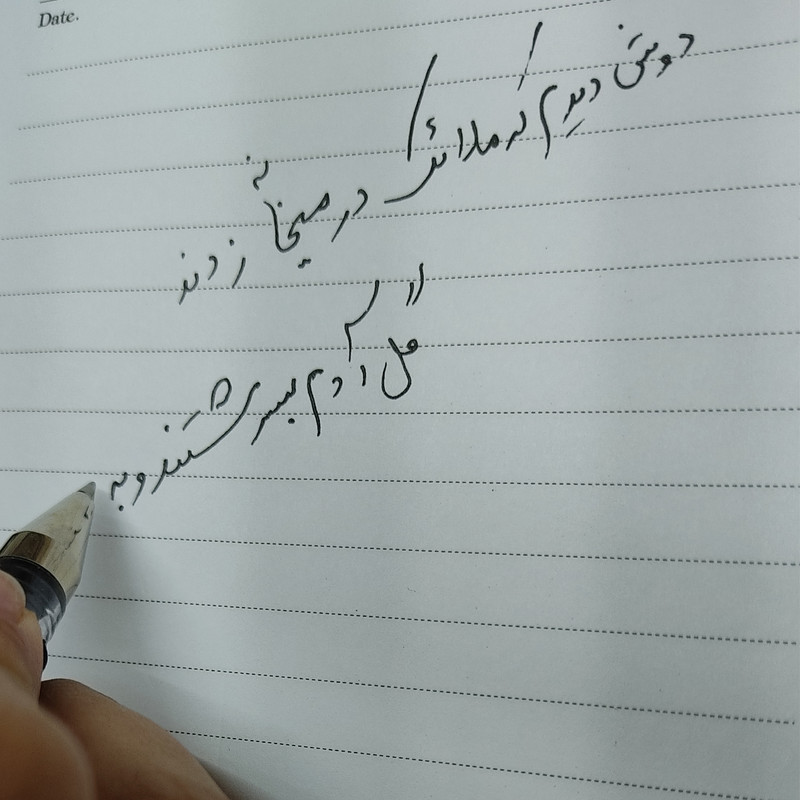 Date.
دوش دیدم که ملائک در میخانه زدند
گل آدم بسرشتند و به